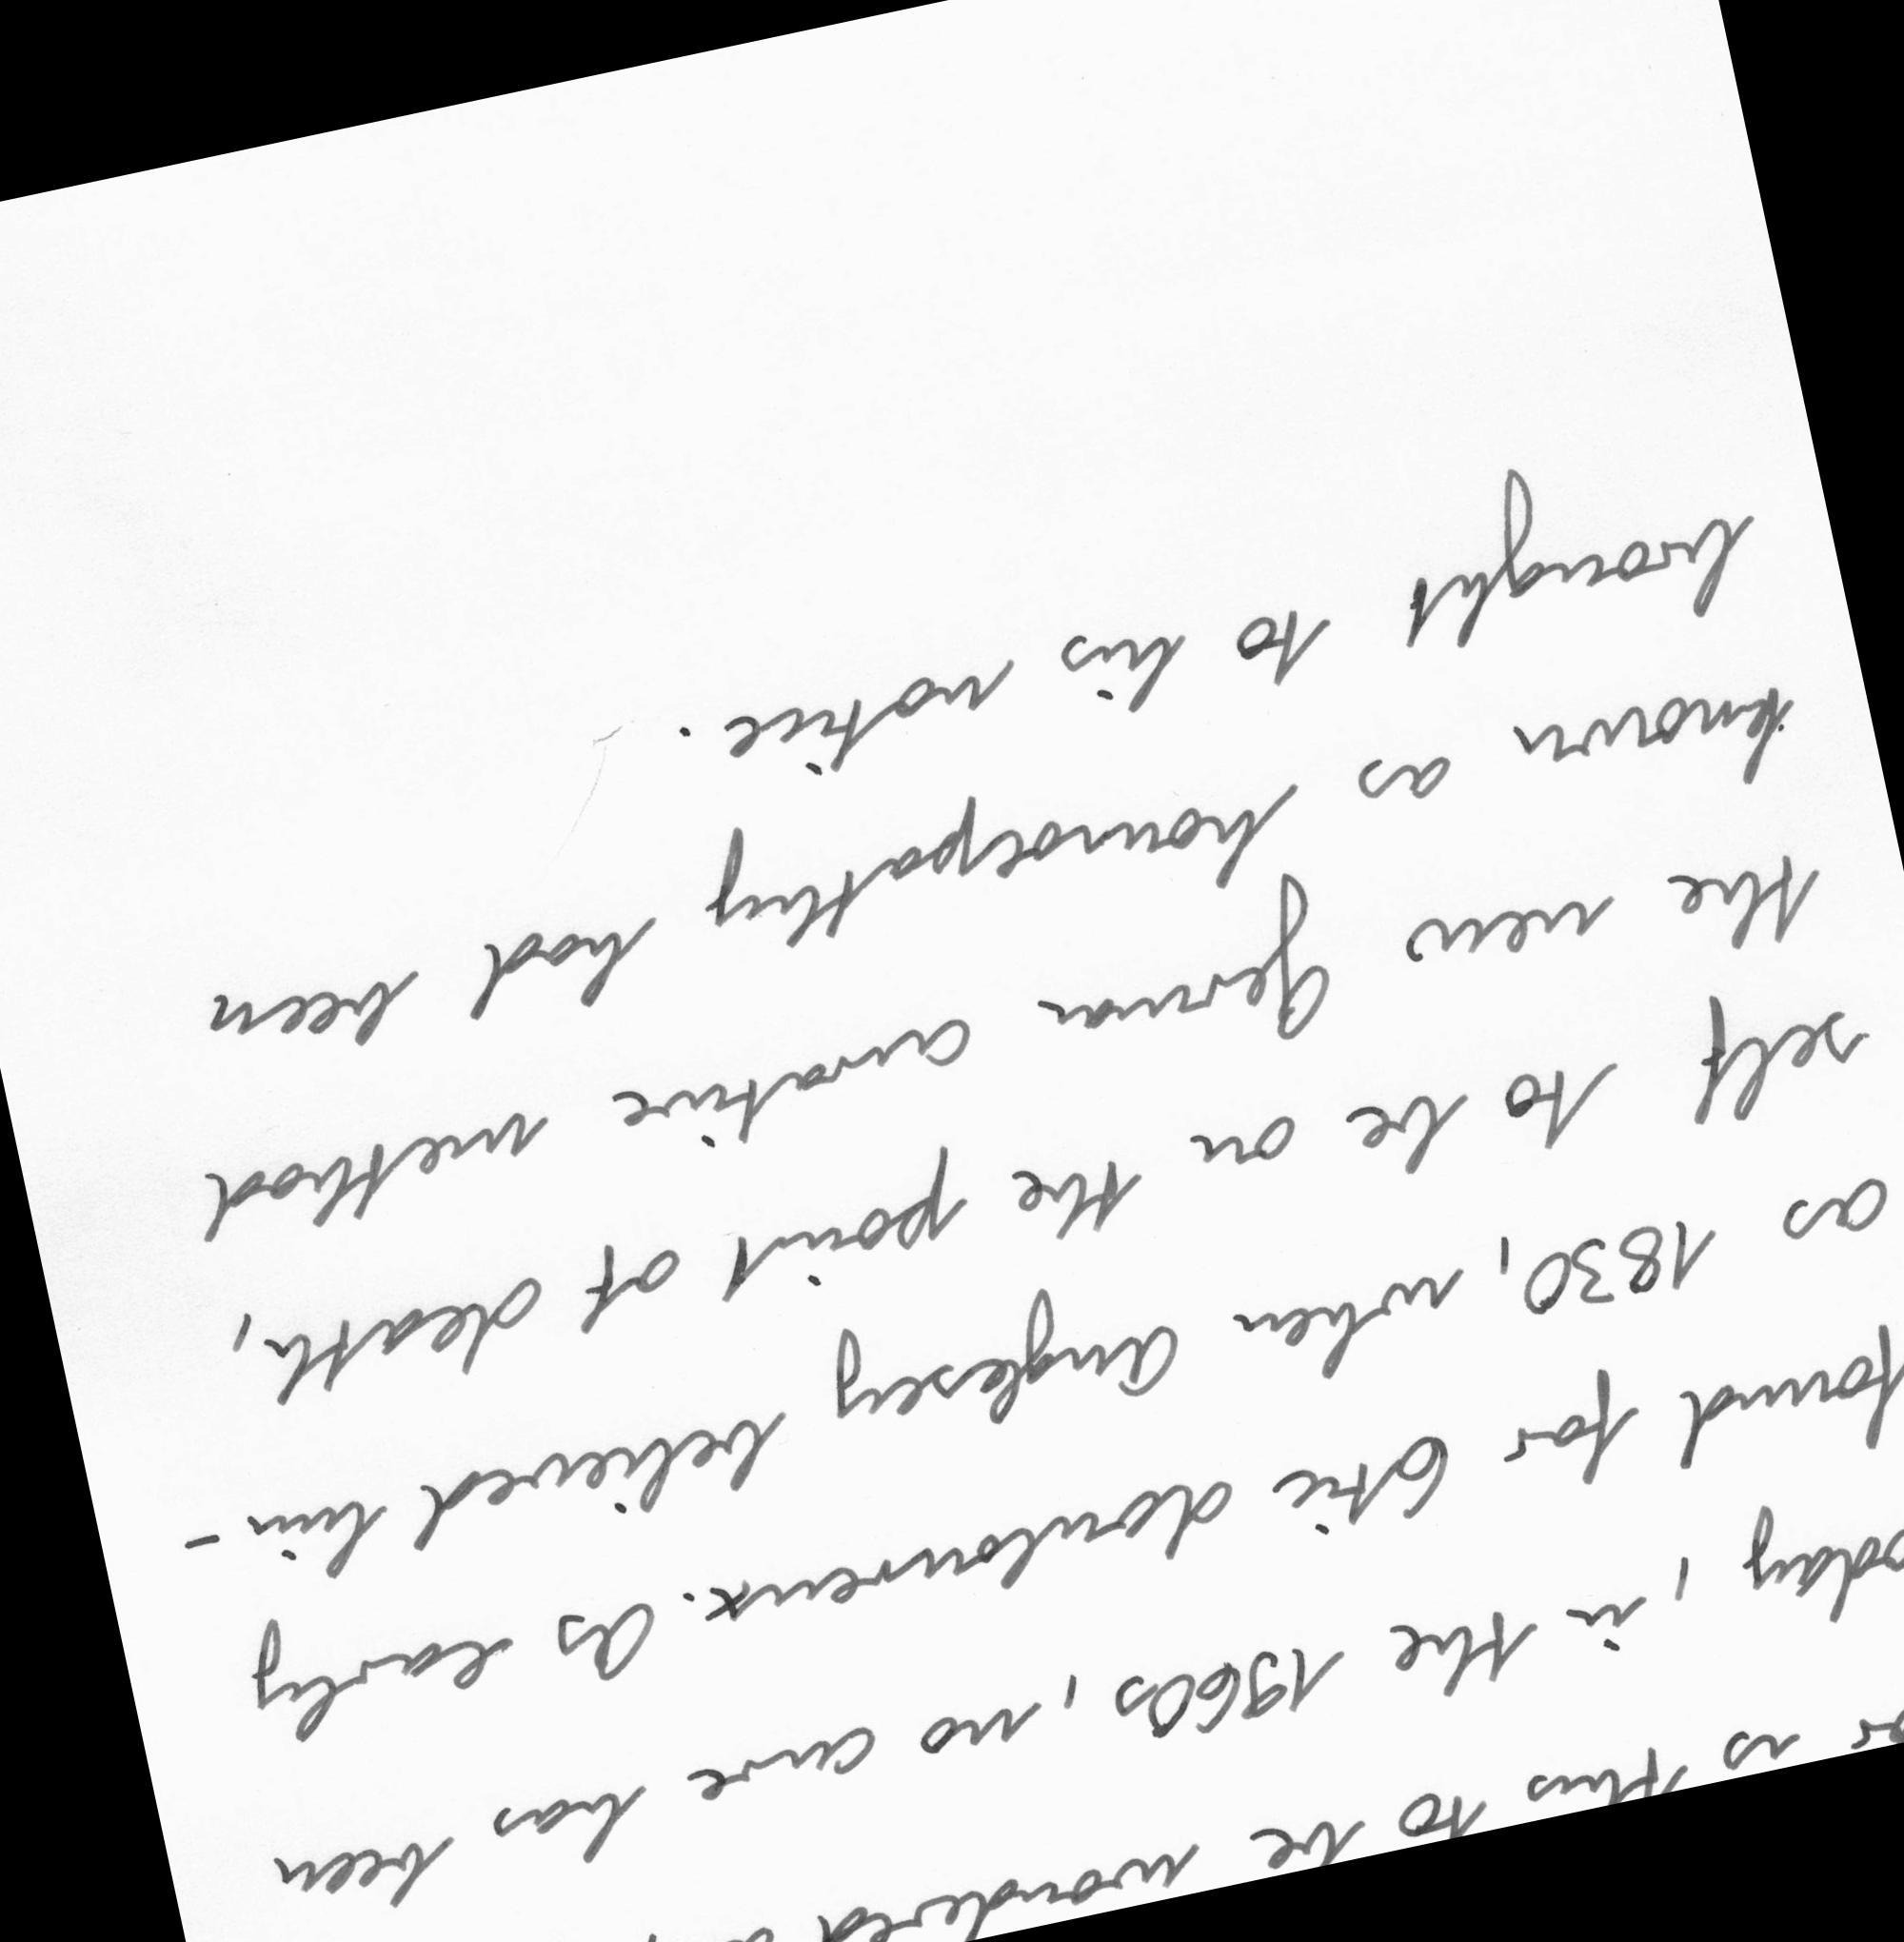 is this to be wondered
, in the 1960s, no cure has been
found for tic douloureux. As early
as 1830, when Anglesey believed him-
self to be on the point of death,
the new German curative method
known as homoepathy had been
brought to his notice.